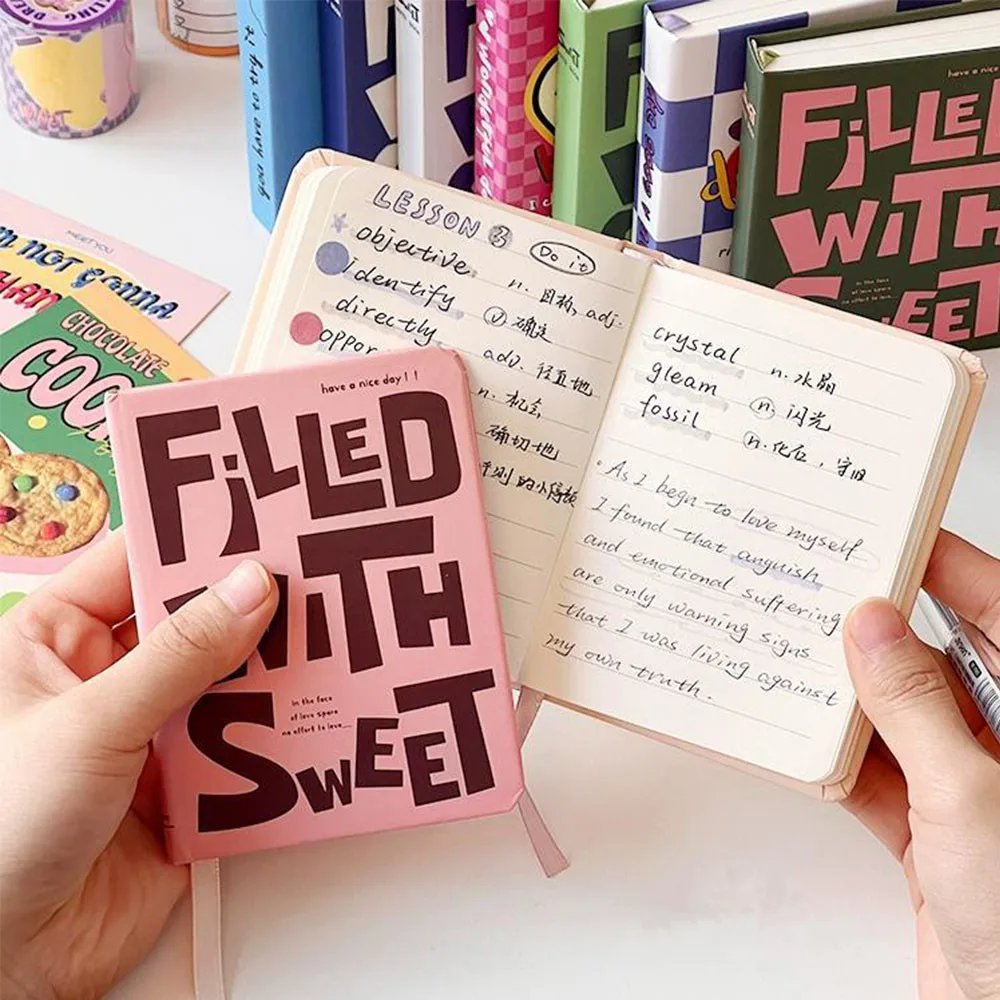 have a nice day!!
FiLLED
WITH
in the face
of love spare
no effort to love...
SWEET
LESSON 3
Do it
objective. n. 目标, adj.
identify ⓥ 确定
directly. adv. 径直地
oppor n. 机会
确切地
的小停顿
crystal n. 水晶
gleam ⓝ. 闪光
fossil ⓝ. 化石, 守旧
As I begn to love myself
I found that anguish
and emotional suffering
are only warning signs
that I was living against
my own truth.
have a nice
FiLLE
WITH
in the face
of love spare
no effort to love...
SWEET
MEET YOU
'M NOT GONNA
CHAN
CHOCOLATE
COO